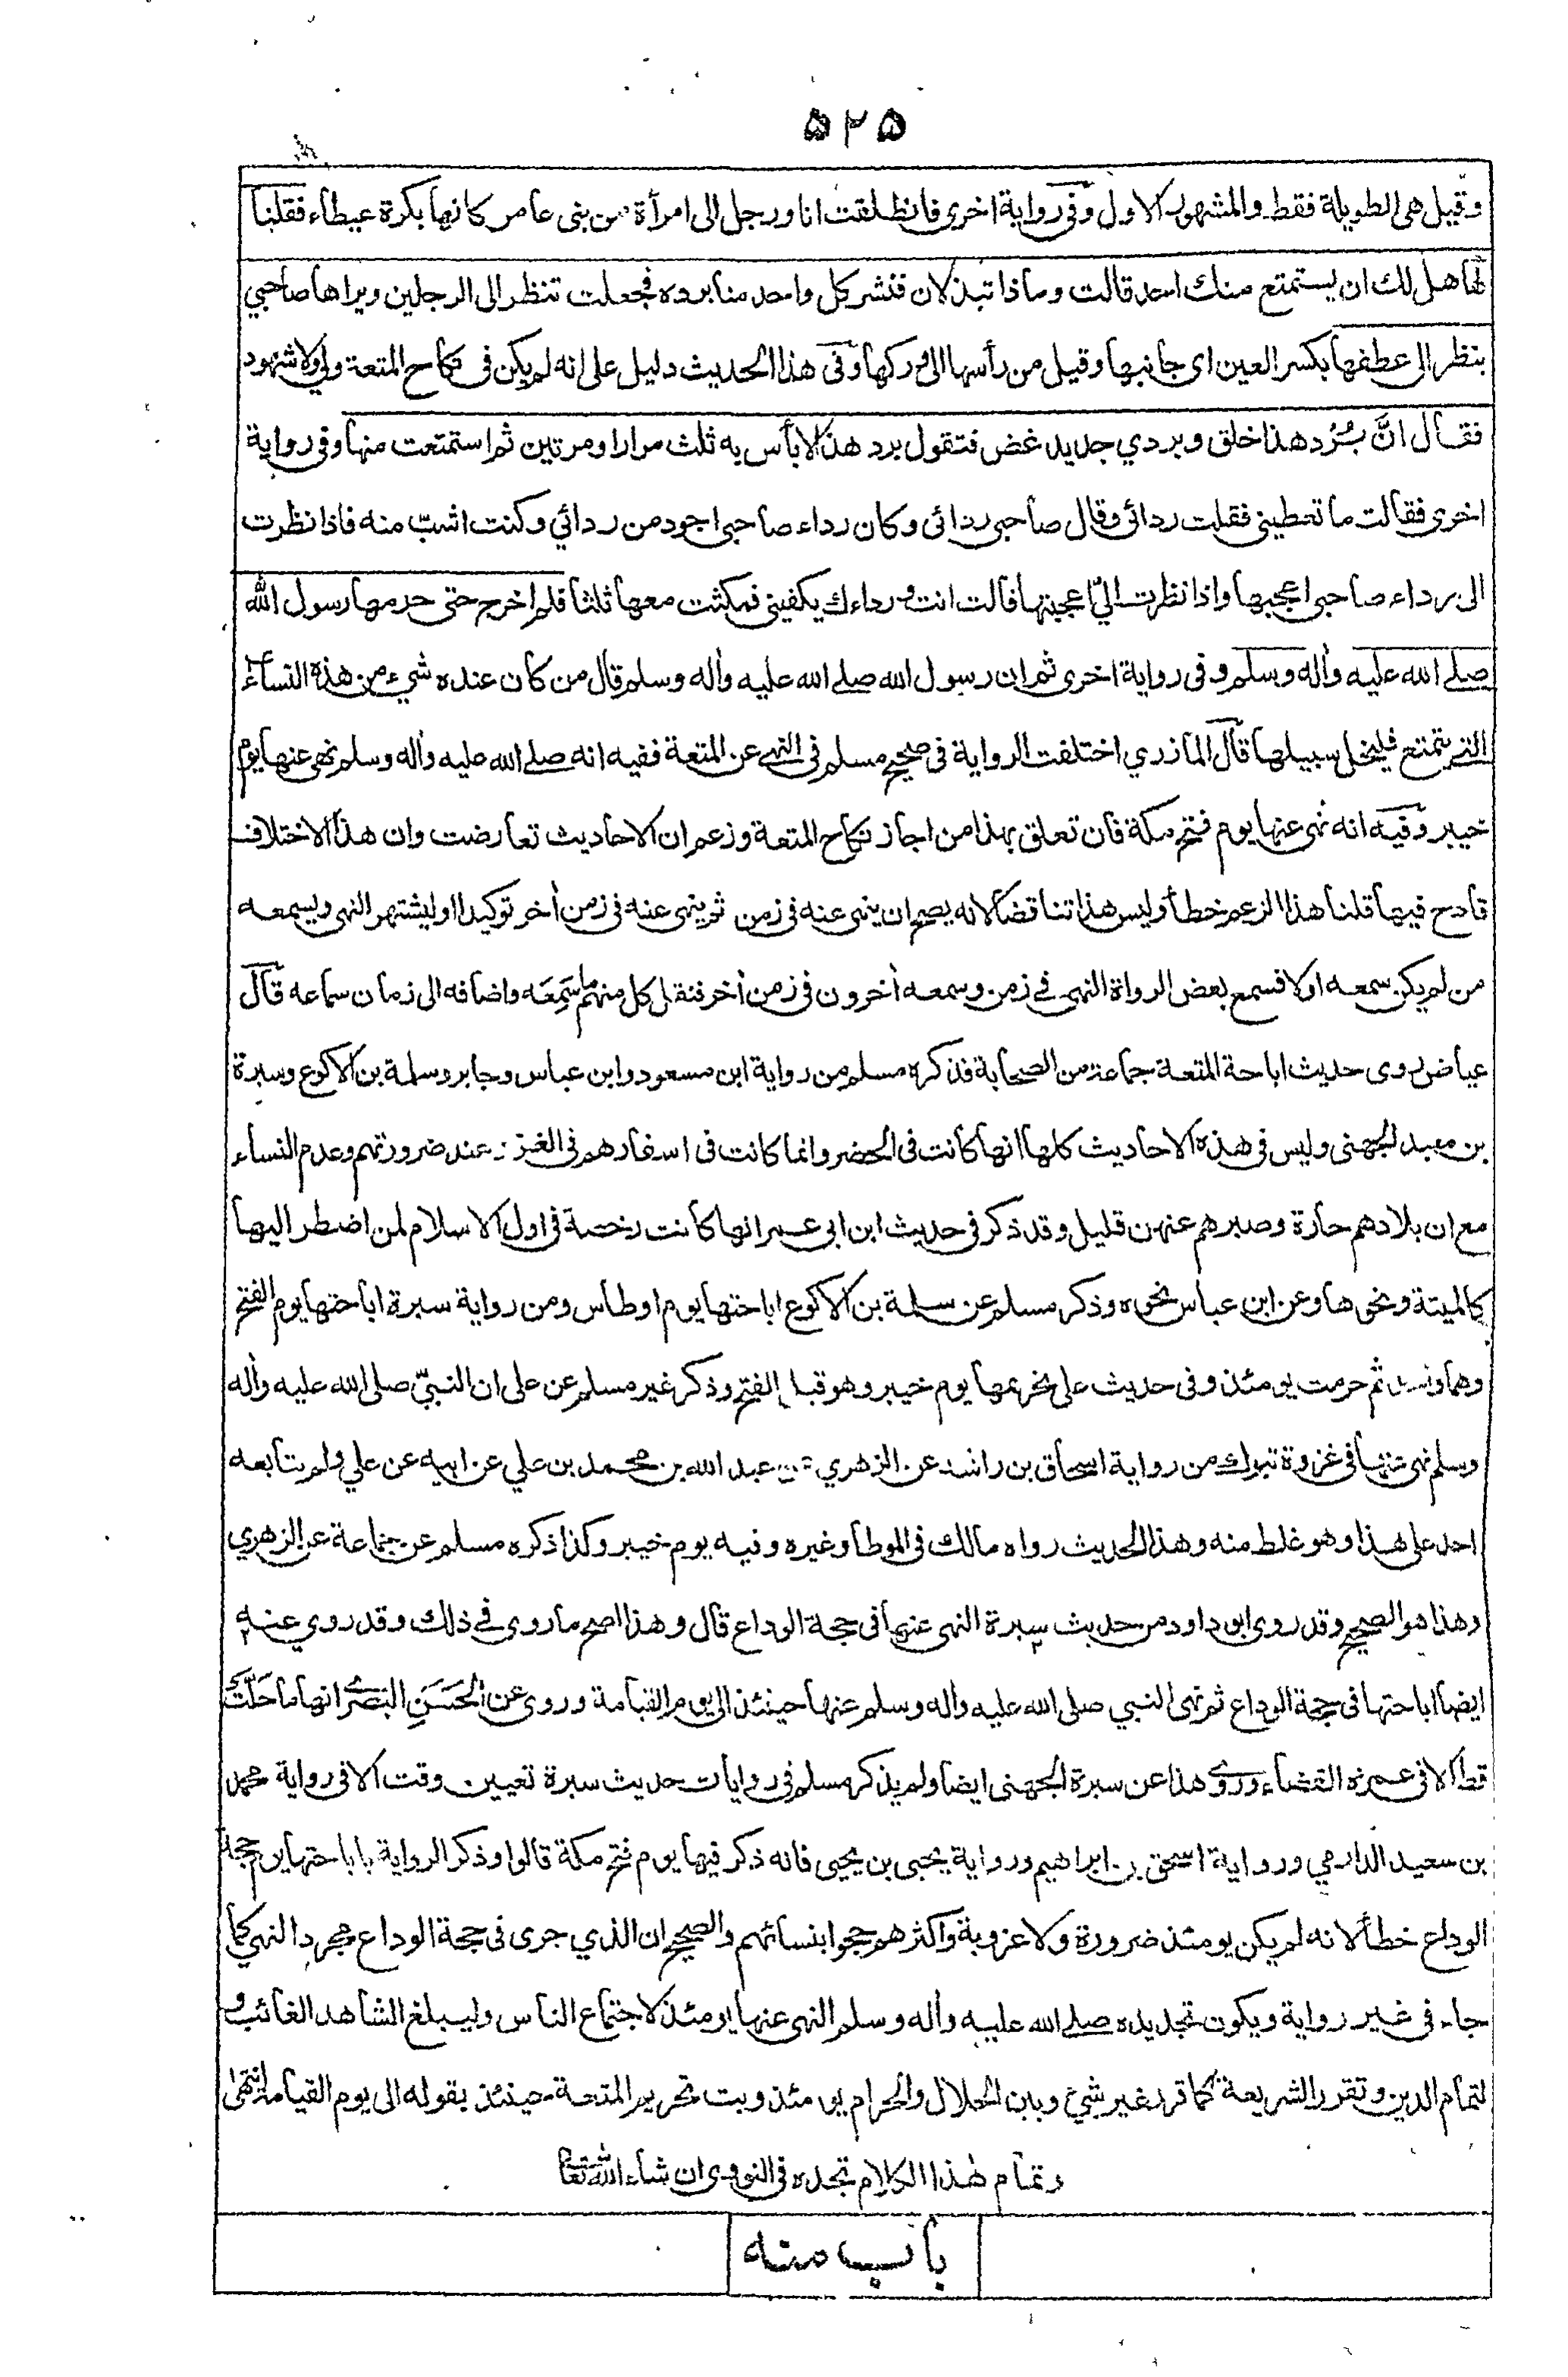 ٥٢٥
وقيل هي الطويلة فقط والمشهور الاول وفى رواية اخرى فانطلقت انا ورجل الى امرأة من بنى عامر كانها بكرة عيطاء فقلنا
لها هل لك ان يستمتع منك احد قالت وماذا تبذلان فنشر كل واحد منا برده فجعلت تنظر الى الرجلين ويراها صاحبي
ينظر الى عطفها بكسر العين اى جانبها وقيل من رأسها الى وركها وفى هذا الحديث دليل على انه لم يكن فى نكاح المتعة ولى ولا شهود
فقال انَّ بُرْد هذا خلق وبردي جديد غض فتقول برد هذا لا بأس به ثلث مرارا ومرتين ثم استمتعت منها وفى رواية
اخرى فقالت ما تعطينى فقلت ردائى وقال صاحبى ردائى وكان رداء صاحبى اجود من ردائي وكنت اشبّ منه فاذا نظرت
الى رداء صاحبى اعجبها واذا نظرت اليّ اعجبتها قالت انت ورداءك يكفينى فمكثت معها ثلثا فلم اخرج حتى حرمها رسول الله
صلے الله عليه وأله وسلم وفى رواية اخرى ثم ان رسول الله صلے الله عليه وأله وسلم قال من كان عنده شيء من هذه النساء
التى يتمتع فليخل سبيلها قال المازري اختلفت الرواية فى صحيح مسلم فى النهے عن المتعة ففيه انه صلے الله عليه وأله وسلم نهى عنها يوم
خيبر وفيه انه نهى عنها يوم فتح مكة فان تعلق بهذا من اجاز نكاح المتعة وزعم ان الاحاديث تعارضت وان هذا الاختلاف
قادح فيها قلنا هذا الزعم خطأ وليس هذا تناقضا لانه يصح ان ينهى عنه فى زمن ثم ينهى عنه فى زمن أخر توكيدا او ليشتهر النهى ويسمعه
من لم يكن سمعه اولا فسمع بعض الرواة النهى فے زمن وسمعه أخرون فى زمن أخر فنقل كل منهم ما سَمِعَه واضافه الى زمان سماعه قال
عياض روى حديث اباحة المتعة جماعة من الصحابة فذكره مسلم من رواية ابن مسعود وابن عباس وجابر وسلمة بن الاكوع وسبرة
بن معبد الجهنى وليس فى هذه الاحاديث كلها انها كانت فى الحضر وانما كانت فى اسفارهم فى الغزو عند ضرورتهم وعدم النساء
مع ان بلادهم حارة وصبرهم عنهن قليل وقد ذكر فى حديث ابن ابى عمر انها كانت رخصة فى اول الاسلام لمن اضطر اليها
كالميتة ونحوها وعن ابن عباس نحوه وذكر مسلم عن سلمة بن الاكوع اباحتها يوم اوطاس ومن رواية سبرة اباحتها يوم الفتح
وهما واحد ثم حرمت يومئذ وفى حديث على تحريمها يوم خيبر وهو قبل الفتح وذكر غير مسلم عن على ان النبيّ صلى الله عليه وأله
وسلم نهى عنها فى غزوة تبوك من رواية اسحاق بن راشد عن الزهري عن عبد الله بن محمد بن علي عن ابيه عن علي ولم يتابعه
احد على هذا وهو غلط منه وهذا الحديث رواه مالك فى الموطأ وغيره وفيه يوم خيبر وكذا ذكره مسلم عن جماعة عن الزهري
وهذا هو الصحيح وقد روى ابو داود من حديث سبرة النهى عنها فى حجة الوداع قال وهذا اصح ما روى فے ذلك وقد روي عنه
ايضا اباحتها فى حجة الوداع ثم نهى النبي صلى الله عليه وأله وسلم عنها حينئذ الى يوم القيامة وروى عن الحَسَنِ البَصْرى انها ما حَلَّتْ
قط الا فى عمرة القضاء وروى هذا عن سبرة الجهنى ايضا ولم يذكر مسلم فى روايات حديث سبرة تعيين وقت الا فى رواية محمد
بن سعيد الدارمي ورواية اسحق بن ابراهيم ورواية يحيى بن يحيى فانه ذكر فيها يوم فتح مكة قالوا وذكر الرواية باباحتها يوم حجة
الوداع خطأ لانه لم يكن يومئذ ضرورة ولا عزوبة واكثرهم حجوا بنسائهم والصحيح ان الذي جرى فى حجة الوداع مجرد النهى كما
جاء فى غير رواية ويكون تجديده صلے الله عليه وأله وسلم النهى عنها يومئذ لاجتماع الناس وليبلغ الشاهد الغائب و
لتمام الدين وتقرر الشريعة كما قرر غير شيئ وبين الحلال والحرام يومئذ وبت تحريم المتعة حينئذ بقوله الى يوم القيامة انتهى
وتمام هذا الكلام تجده فى النووى ان شاء الله تعا
باب منه